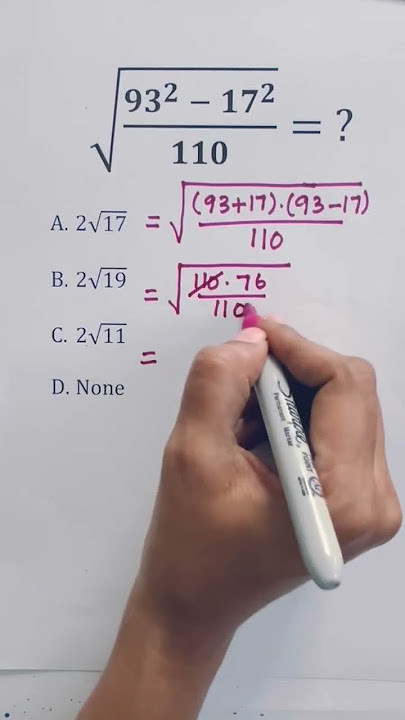 √((93² − 17²)/110) = ?
A. 2√17 = √((93+17)·(93−17)/110)
B. 2√19 = √(110·76/110)
C. 2√11 =
D. None
Sharpie
Permanent Marker